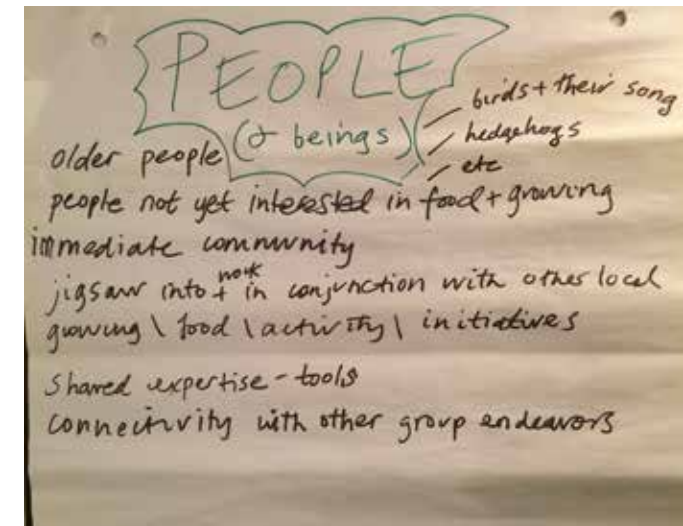 PEOPLE
(& beings)
birds + their song
hedgehogs
etc
older people
people not yet interested in food + growing
immediate community
jigsaw into + work in conjunction with other local
growing \ food \ activity \ initiatives
Shared expertise - tools
connectivity with other group endeavors